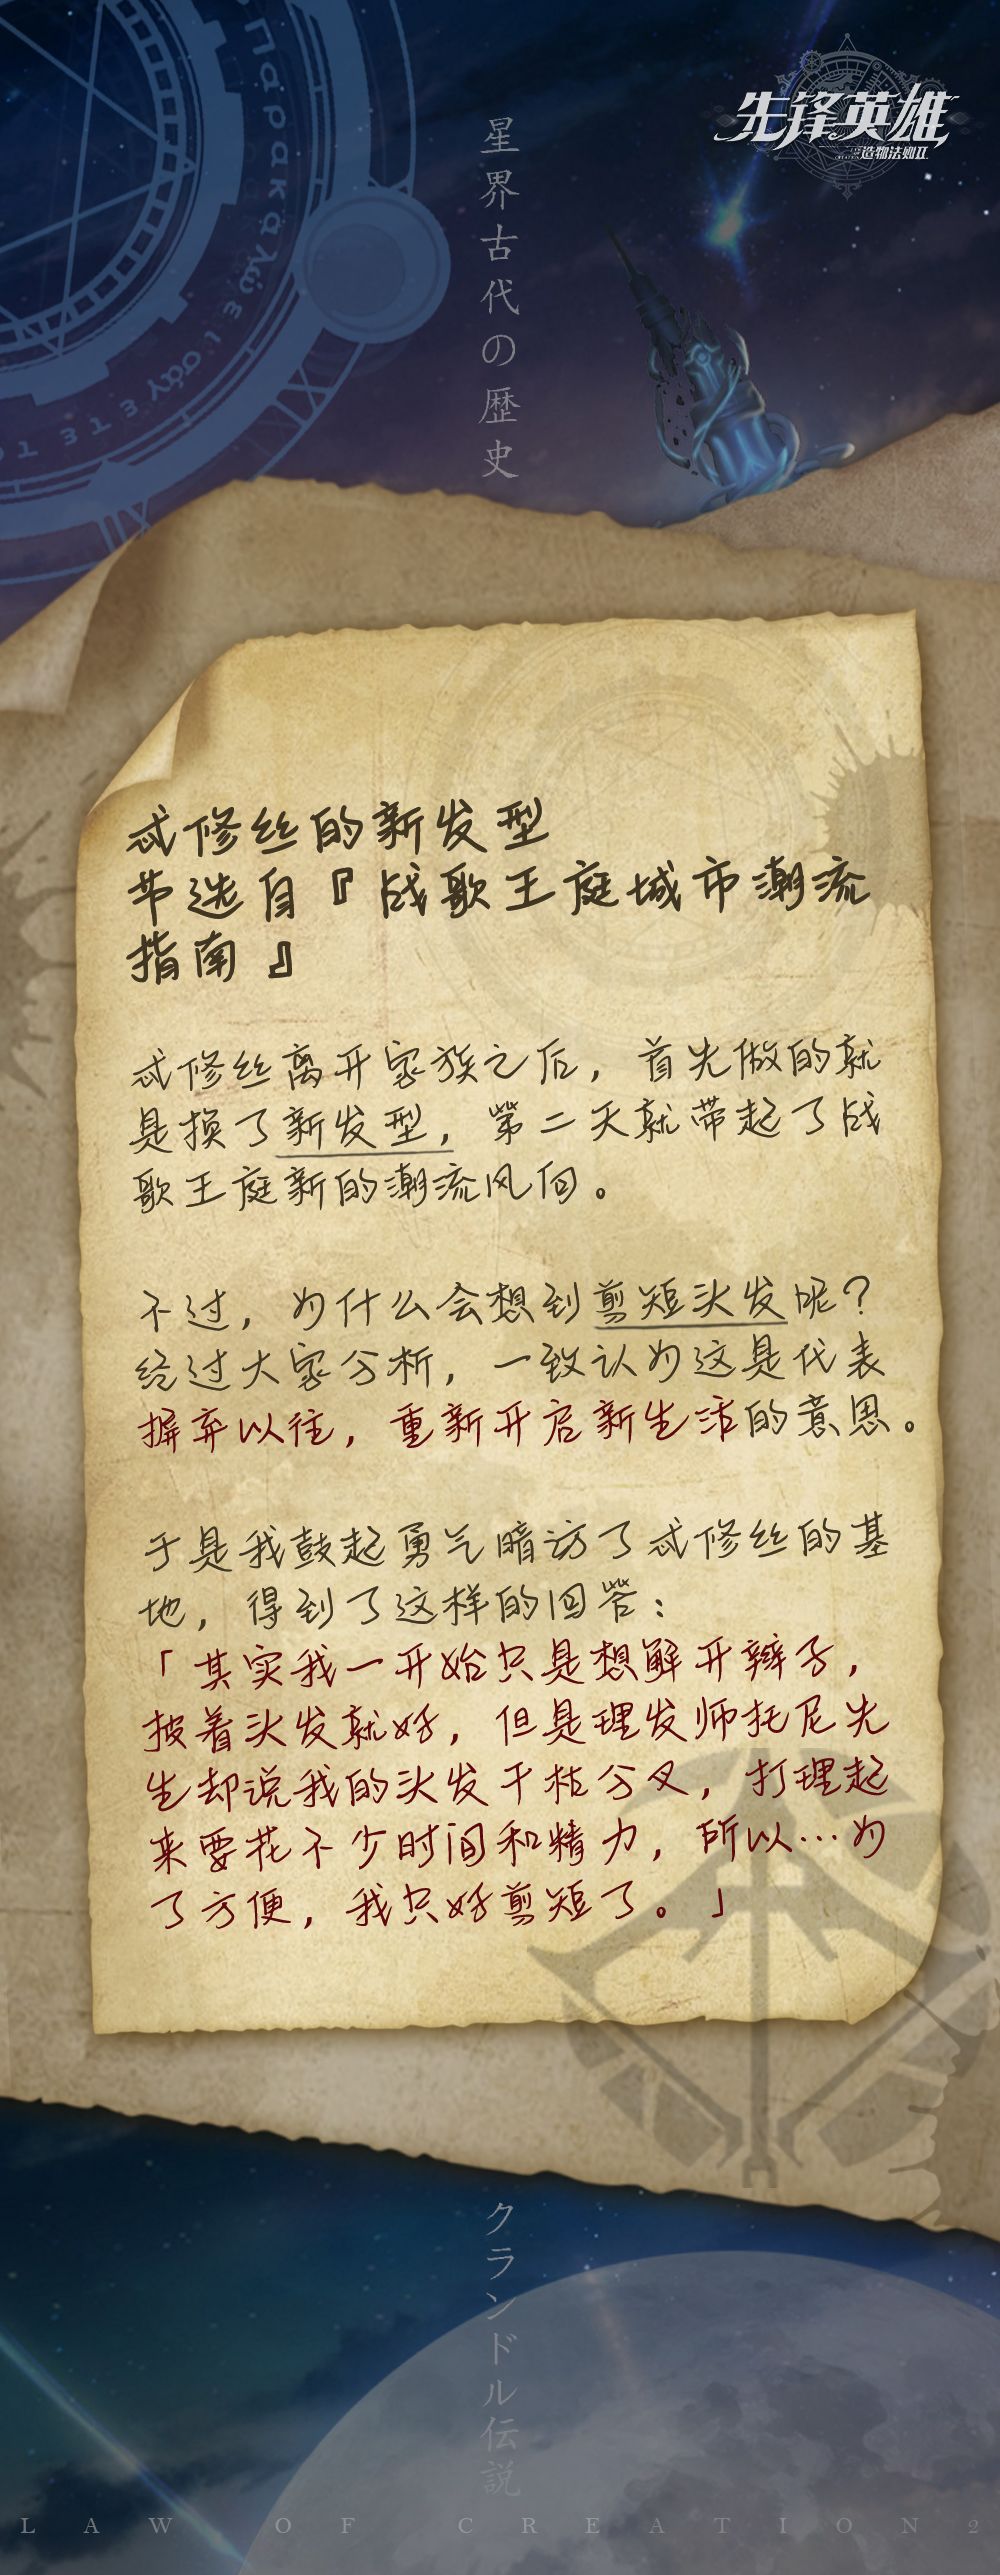 先锋英雄
造物法则II
星界古代の歴史
忒修丝的新发型
节选自『战歌王庭城市潮流
指南』
忒修丝离开家族之后，首先做的就
是换了新发型，第二天就带起了战
歌王庭新的潮流风向。
不过，为什么会想到剪短头发呢？
经过大家分析，一致认为这是代表
摒弃以往，重新开启新生活的意思。
于是我鼓起勇气暗访了忒修丝的基
地，得到了这样的回答：
「其实我一开始只是想解开辫子，
披着头发就好，但是理发师托尼先
生却说我的头发干枯分叉，打理起
来要花不少时间和精力，所以…为
了方便，我只好剪短了。」
クランドル伝説
LAW OF CREATION2